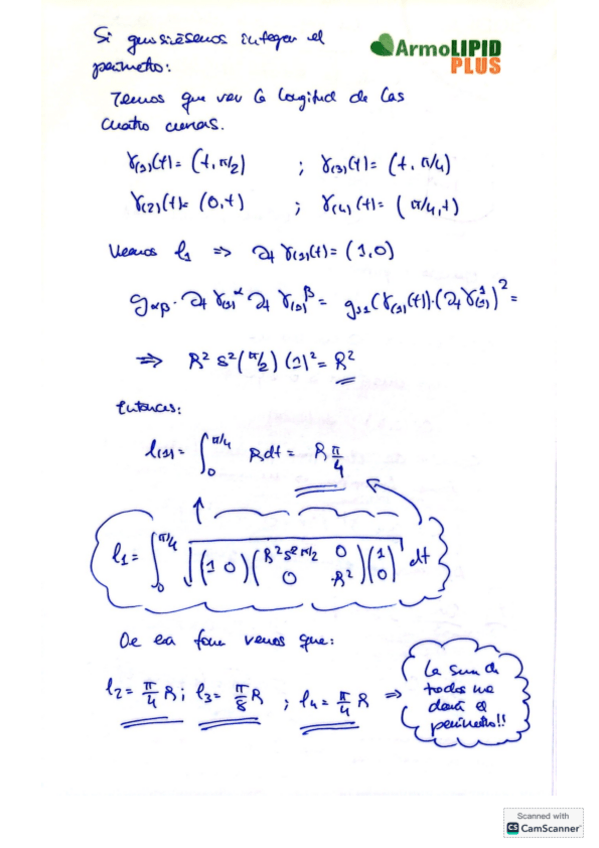 Si quisiésemos integrar el
perímetro:
ArmoLIPID
PLUS
Temos que ver la longitud de las
cuatro curvas.
γ₍₁₎(t) = (t, π/2) ; γ₍₃₎(t) = (t, π/4)
γ₍₂₎(t) = (0, t) ; γ₍₄₎(t) = (π/4, t)
Veamos l₁ ⇒ ∂t γ₍₁₎(t) = (1, 0)
gαβ · ∂t γ₍₁₎^α ∂t γ₍₁₎^β = g₁₁(γ₍₁₎(t)) · (∂t γ₍₁₎^1)² =
⇒ R² s²(π/2) (1)² = R²
Entonces:
l₍₁₎ = ∫₀^π/4 R dt = R π/4
l₁ = ∫₀^π/4 √((1 0) (R² s² π/2 0 ; 0 R²) (1 ; 0)) dt
De esa forma vemos que:
l₂ = π/4 R ; l₃ = π/8 R ; l₄ = π/4 R ⇒
La suma de
todos me
dará el
perímetro!!
Scanned with
CS CamScanner